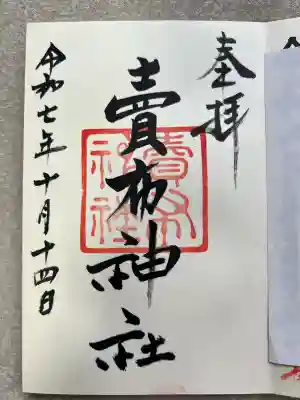 奉拝
賣布神社
賣布
神社
令和七年十月十四日